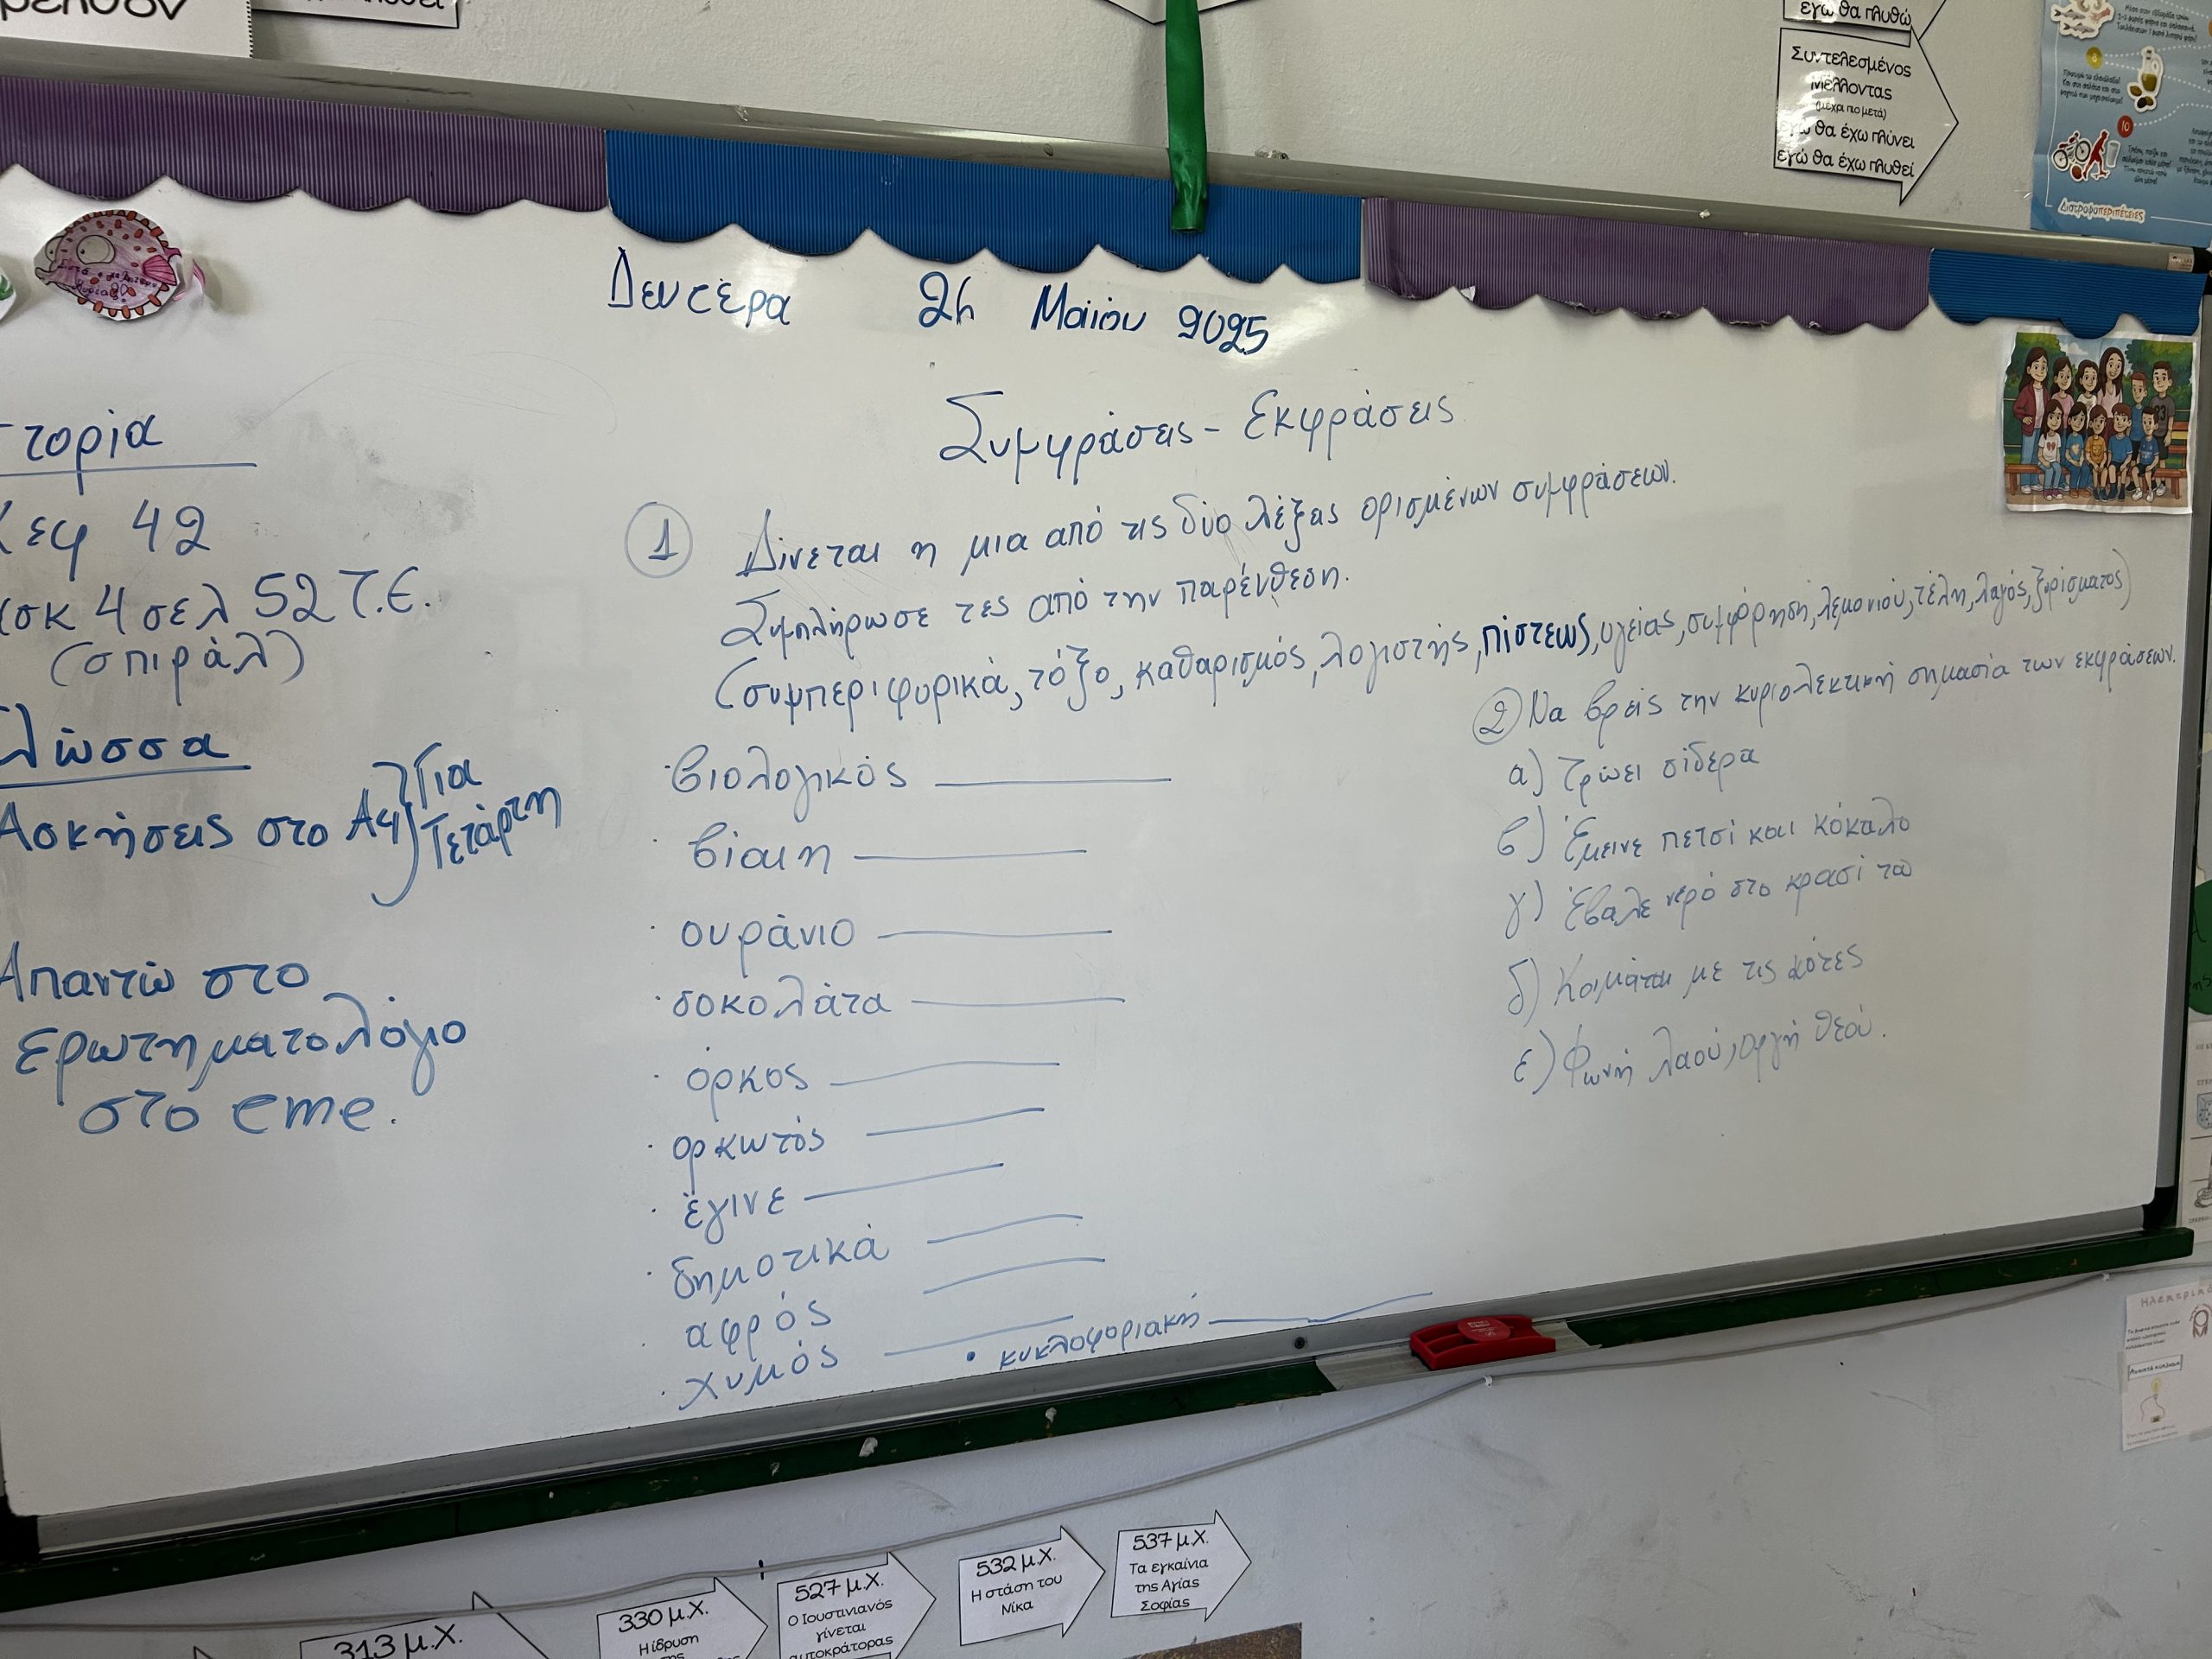 εγώ θα πλυθώ
Συντελεσμένος
Μέλλοντας
(μέχρι πιο μετά)
εγώ θα έχω πλύνει
εγώ θα έχω πλυθεί
Διατροφοπεριπέτειες
Δευτέρα 26 Μαΐου 2025
τορία
Κεφ 42
ασκ 4 σελ 52 Τ.Ε.
(σπιράλ)
Γλώσσα
Ασκήσεις στο Αφ} Για
Τετάρτη
Απαντώ στο
ερωτηματολόγιο
στο eme.
Συμφράσεις - Εκφράσεις
1 Δίνεται η μια από τις δύο λέξεις ορισμένων συμφράσεων.
Συμπλήρωσε τες από την παρένθεση.
(συμπεριφορικά, τόξο, καθαρισμός, λογιστής, πίστεως, υγείας, συμφόρηση, λεμονιού, τέλη, λαγός, ξυρίσματος)
· βιολογικός
· βίαιη
· ουράνιο
· σοκολάτα
· όρκος
· ορκωτός
· έγινε
· δημοτικά
· αφρός
· χυμός
• κυκλοφοριακή
2 Να βρεις την κυριολεκτική σημασία των εκφράσεων.
α) Τρώει σίδερα
β) Έμεινε πετσί και κόκαλο
γ) Έβαλε νερό στο κρασί του
δ) Κοιμάται με τις κότες
ε) Φωνή λαού, οργή Θεού.
313 μ.Χ.
330 μ.Χ.
Η ίδρυση
527 μ.Χ.
Ο Ιουστινιανός
γίνεται
αυτοκράτορας
532 μ.Χ.
Η στάση του
Νίκα
537 μ.Χ.
Τα εγκαίνια
της Αγίας
Σοφίας